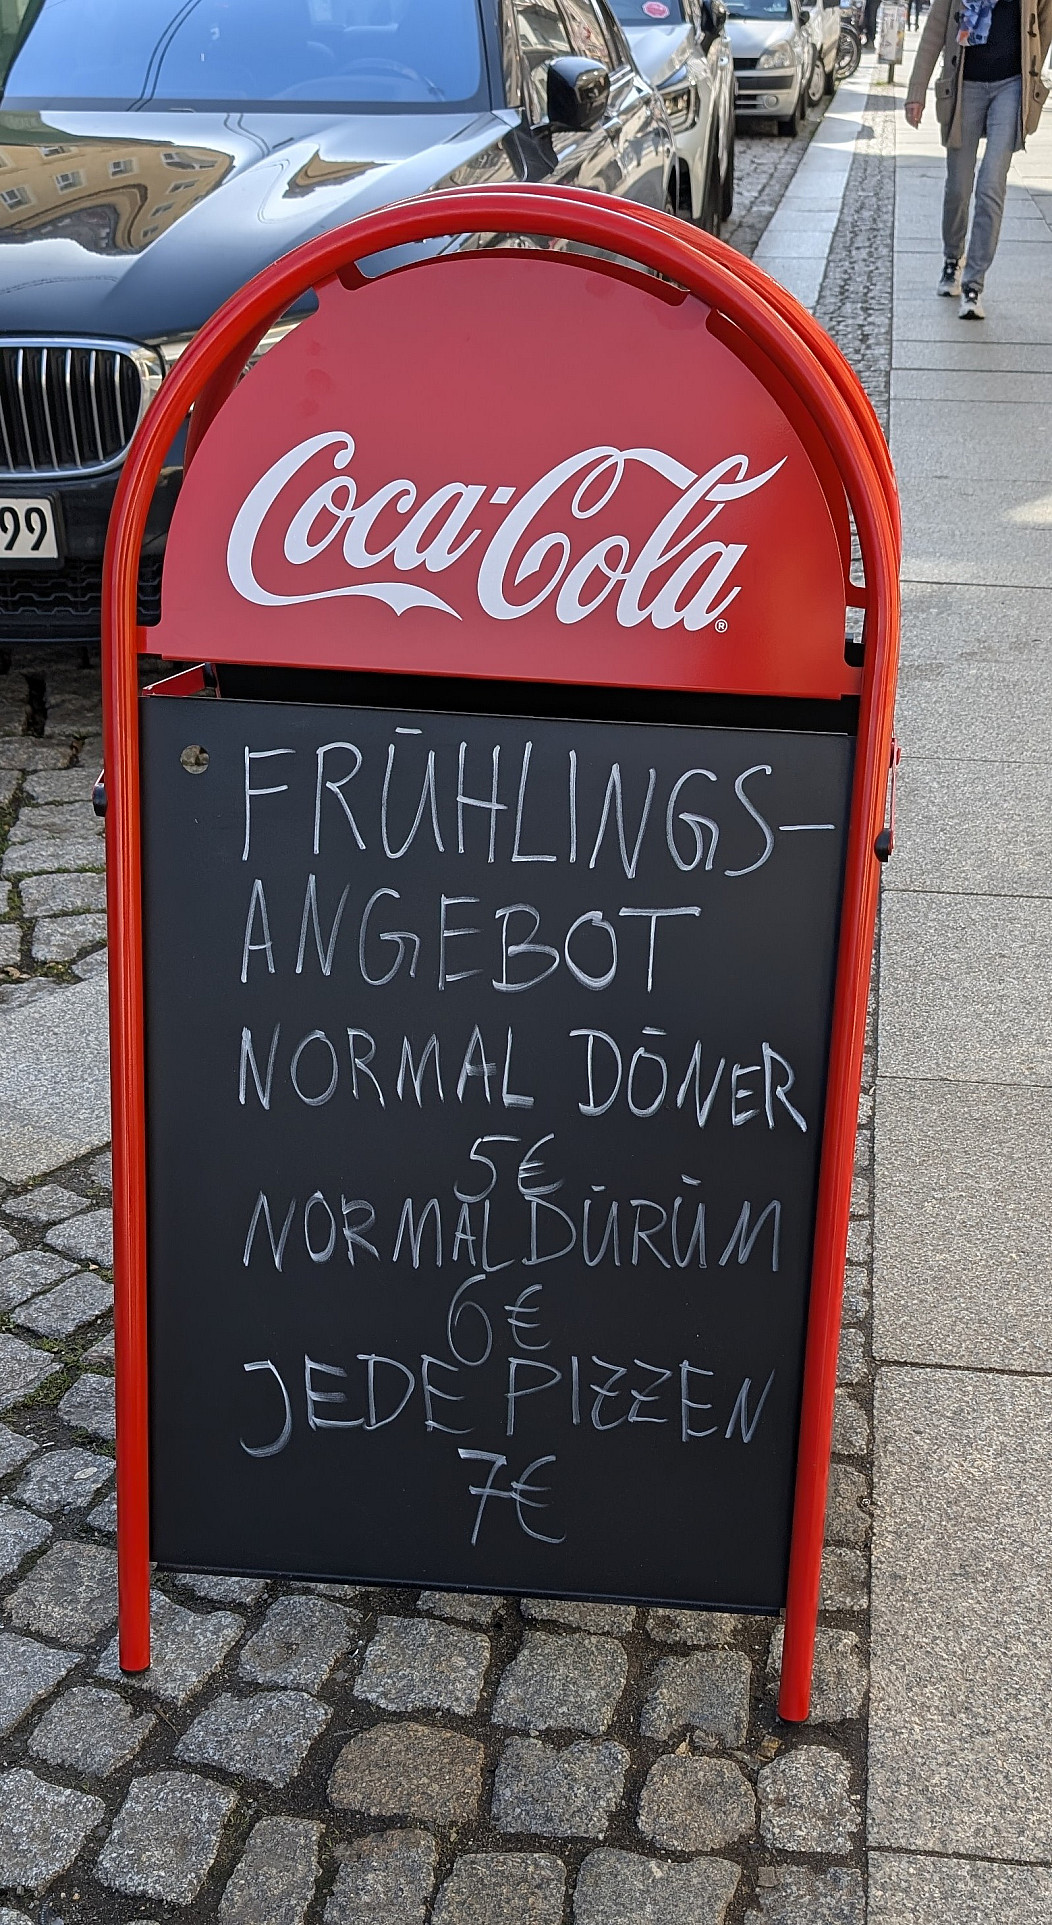 99
Coca-Cola®
FRÜHLINGS-
ANGEBOT
NORMAL DÖNER
5€
NORMAL DÜRÜM
6€
JEDE PIZZEN
7€